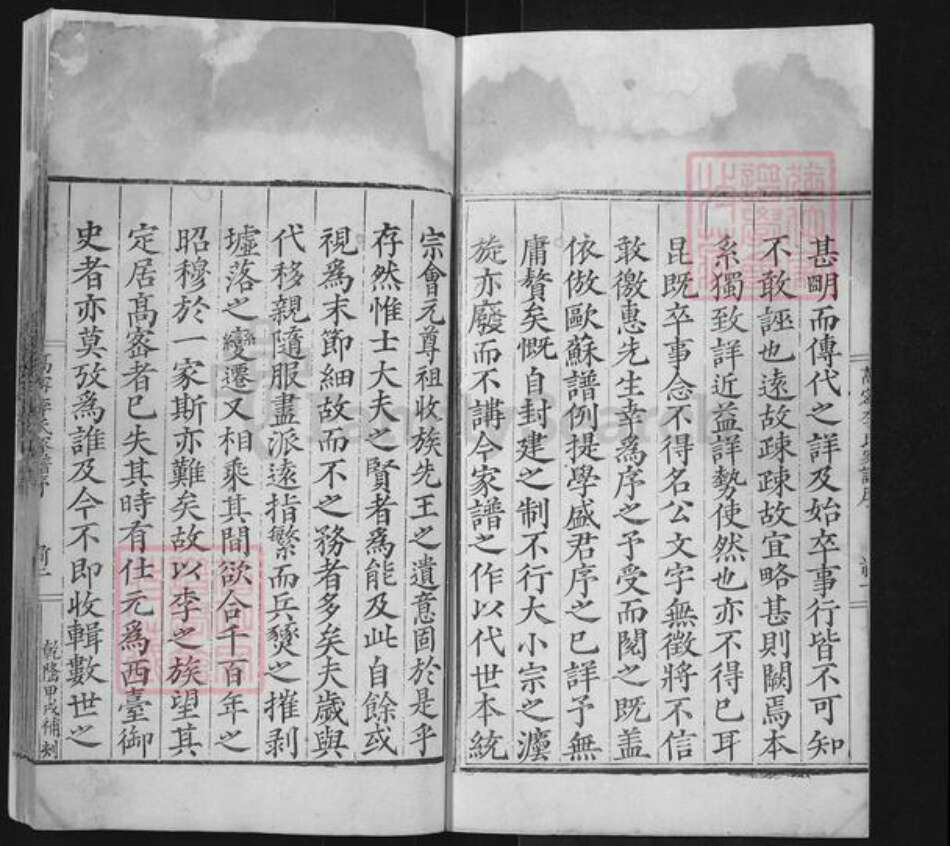 甚明而傳代之詳及始卒事行皆不可知
不敢誣也遠故疎疎故宜略甚則闕焉本
系獨致詳近益詳勢使然也亦不得已耳
昆既卒事念不得名公文字無徵將不信
敢徼惠先生幸爲序之予受而閱之既盖
依倣歐蘇譜例提學盛君序之已詳予無
庸贅矣慨自封建之制不行大小宗之灋
旋亦廢而不講今家譜之作以代世本統
宗會元尊祖收族先王之遺意固於是乎
存然惟士大夫之賢者爲能及此自餘或
視爲末節細故而不之務者多矣夫歲與
代移親隨服盡派遠指繁而兵燹之摧剥
墟落之變遷又相乘其間欲合千百年之
昭穆於一家斯亦難矣故以李之族望其
定居高密者已失其時有仕元爲西臺御
史者亦莫攷爲誰及今不即收輯數世之
乾隆甲戌補刻